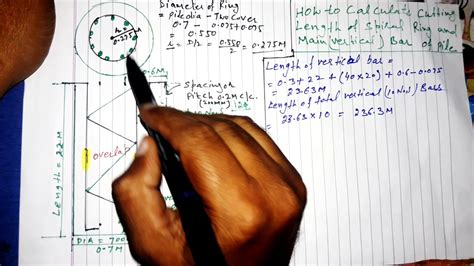 Diameter of Ring
= Pile dia - Two Cover
0.7 - 0.075+0.075
= 0.550
r = D/2 = 0.550/2 = 0.275M
r =
0.275M
0.6M
Spacing or
Pitch 0.2M c/c.
(200MM)
12Ø
overlap
Length = 22M
DIA = 700
0.7M
How to Calculate Cutting
Length of Spiral Ring and
Main (vertical) Bar of Pile
Length of vertical bar =
= 0.3+22+(40×20)+0.6-0.075
= 23.63M
Length of total vertical (10 Nos) Bars
= 23.63×10 = 236.3M